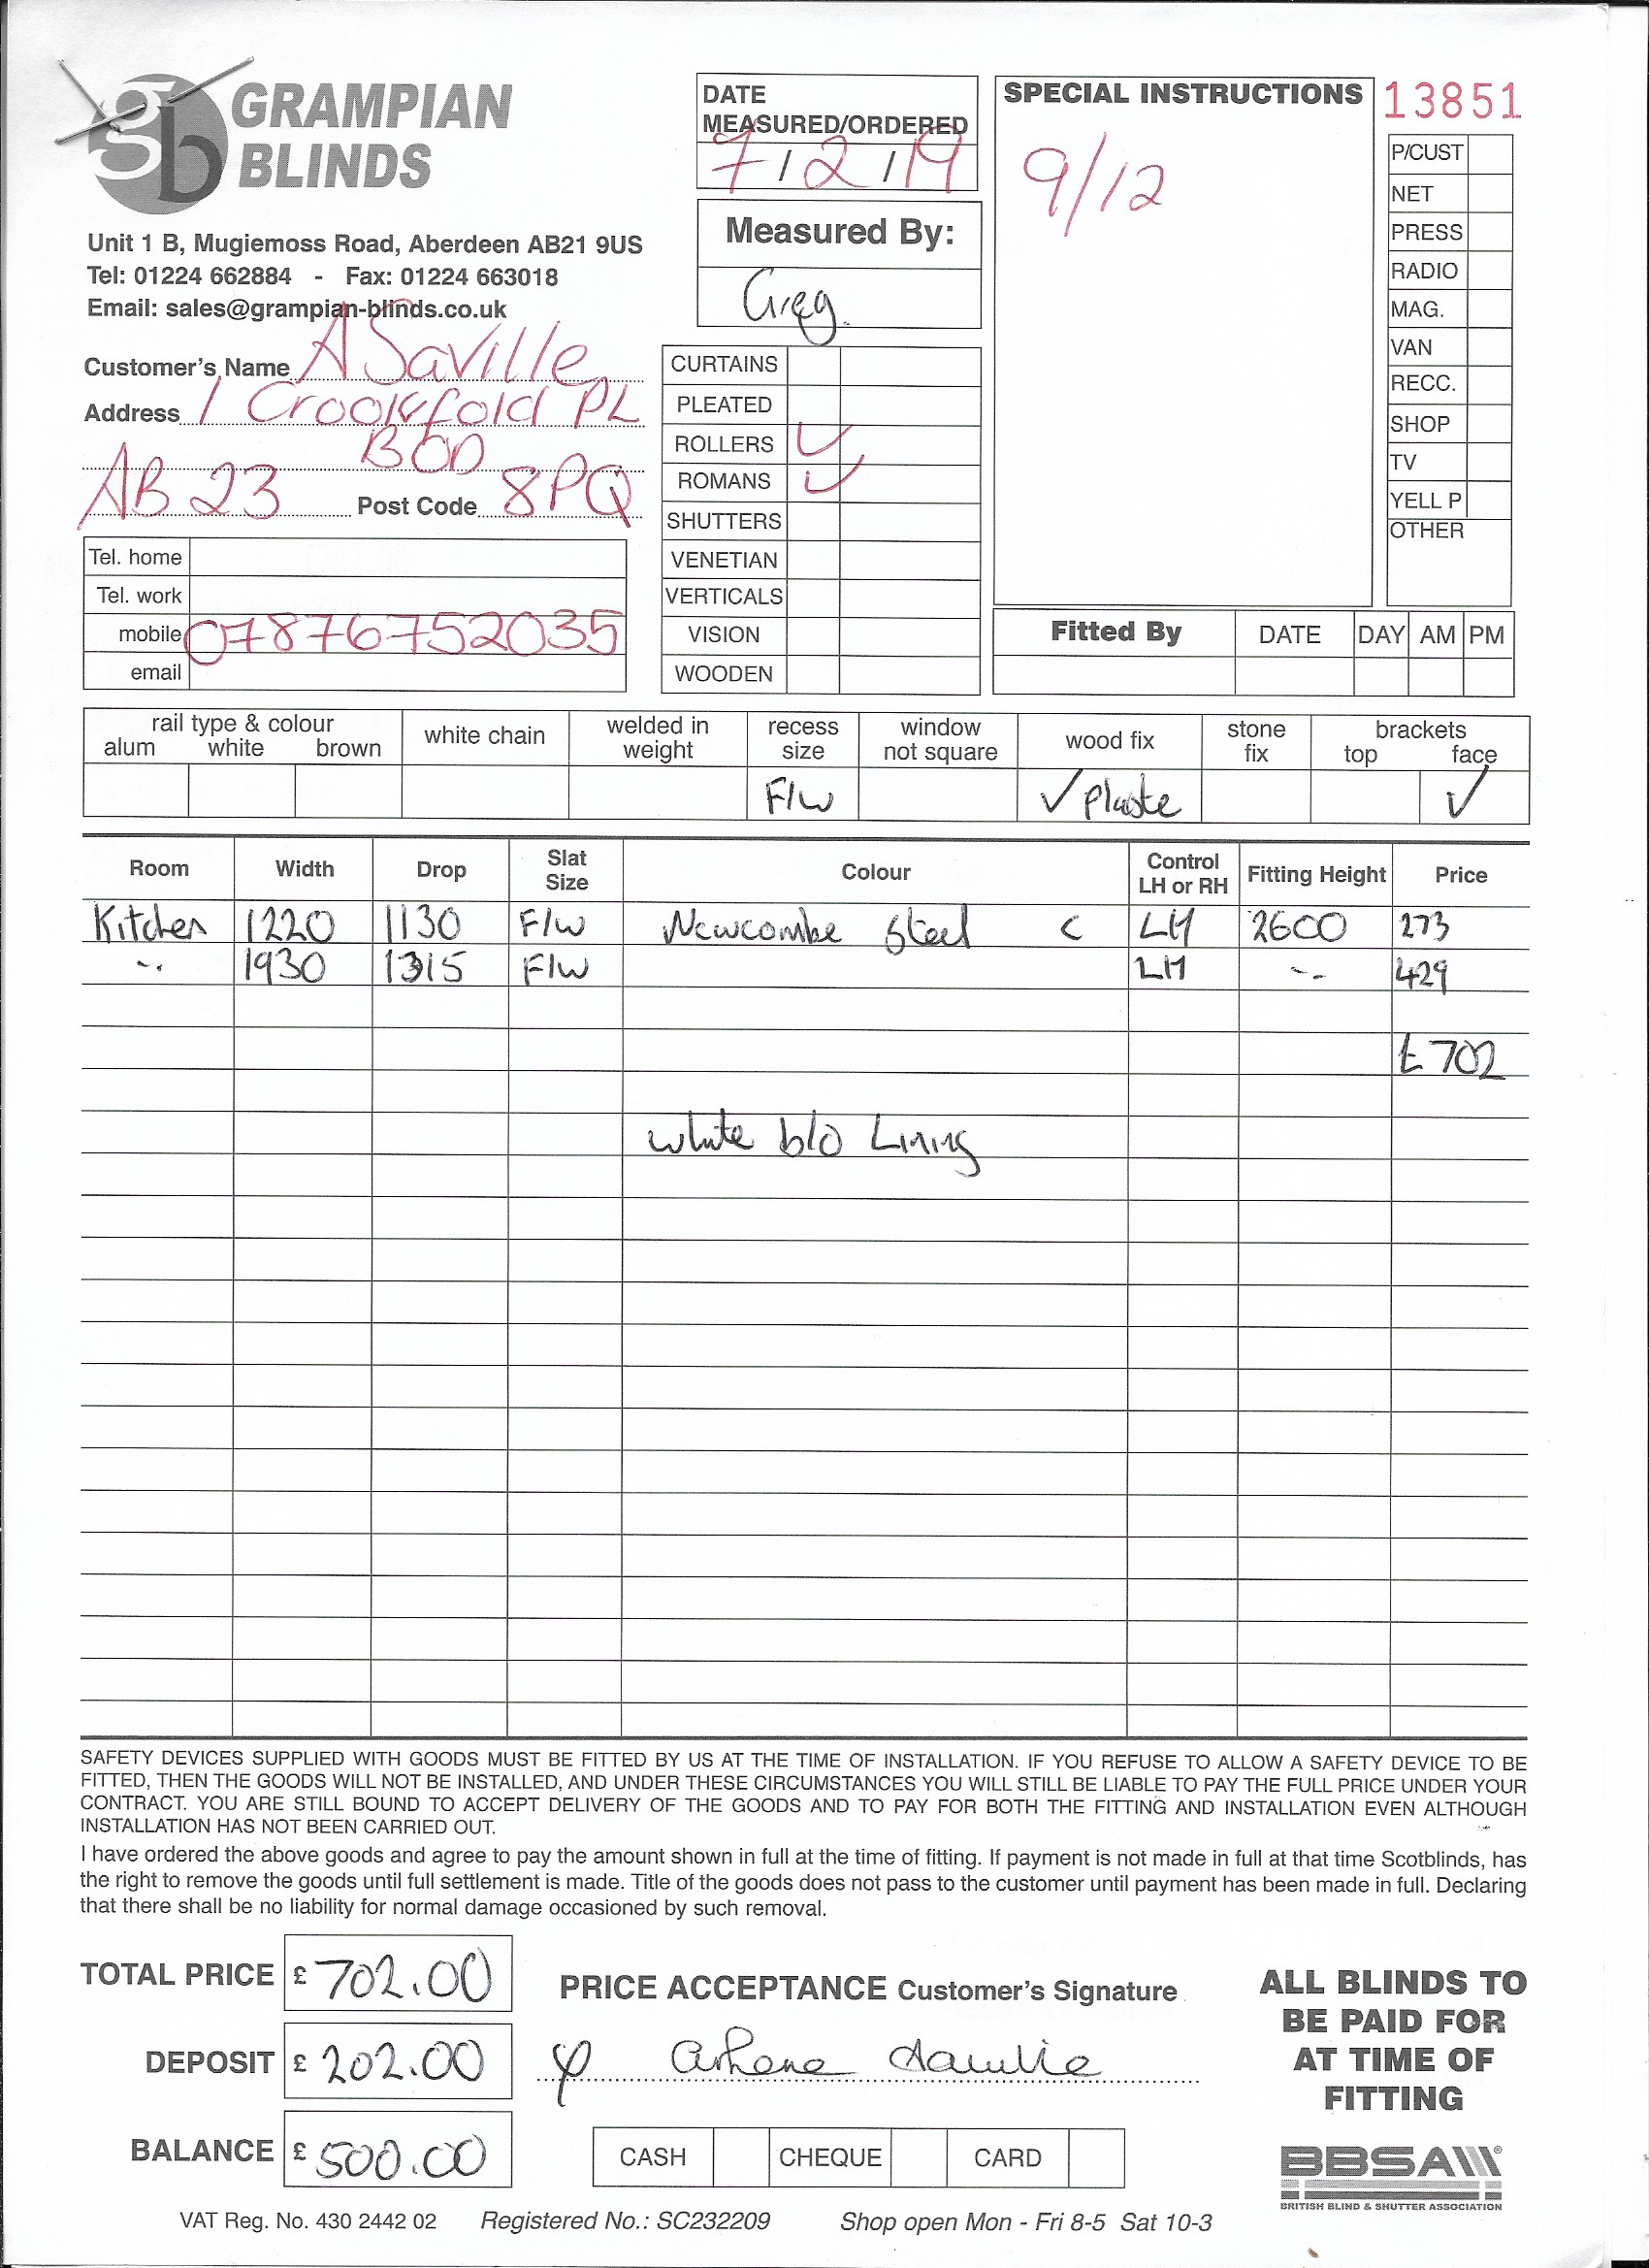 gb GRAMPIAN
BLINDS
Unit 1 B, Mugiemoss Road, Aberdeen AB21 9US
Tel: 01224 662884 - Fax: 01224 663018
Email: sales@grampian-blinds.co.uk
Customer's Name A Saville
Address 1 Crookfold PL
BOD
AB23 Post Code 8PQ
Tel. home
Tel. work
mobile 07876752035
email
DATE
MEASURED/ORDERED
7/2/19
Measured By:
Greg
CURTAINS
PLEATED
ROLLERS ✓
ROMANS ✓
SHUTTERS
VENETIAN
VERTICALS
VISION
WOODEN
SPECIAL INSTRUCTIONS
9/12
13851
P/CUST
NET
PRESS
RADIO
MAG.
VAN
RECC.
SHOP
TV
YELL P
OTHER
Fitted By DATE DAY AM PM
rail type & colour
alum white brown
white chain
welded in
weight
recess
size
F/W
window
not square
wood fix
✓ plaste
stone
fix
brackets
top face
✓
Room Width Drop Slat Size Colour Control LH or RH Fitting Height Price
Kitchen 1220 1130 F/W Newcombe Steel C LH 2600 273
1930 1315 F/W LH 429
£702
white b/o Lining
SAFETY DEVICES SUPPLIED WITH GOODS MUST BE FITTED BY US AT THE TIME OF INSTALLATION. IF YOU REFUSE TO ALLOW A SAFETY DEVICE TO BE
FITTED, THEN THE GOODS WILL NOT BE INSTALLED, AND UNDER THESE CIRCUMSTANCES YOU WILL STILL BE LIABLE TO PAY THE FULL PRICE UNDER YOUR
CONTRACT. YOU ARE STILL BOUND TO ACCEPT DELIVERY OF THE GOODS AND TO PAY FOR BOTH THE FITTING AND INSTALLATION EVEN ALTHOUGH
INSTALLATION HAS NOT BEEN CARRIED OUT.
I have ordered the above goods and agree to pay the amount shown in full at the time of fitting. If payment is not made in full at that time Scotblinds, has
the right to remove the goods until full settlement is made. Title of the goods does not pass to the customer until payment has been made in full. Declaring
that there shall be no liability for normal damage occasioned by such removal.
TOTAL PRICE £ 702.00
DEPOSIT £ 202.00
BALANCE £ 500.00
PRICE ACCEPTANCE Customer's Signature
CASH CHEQUE CARD
ALL BLINDS TO
BE PAID FOR
AT TIME OF
FITTING
BBSA
BRITISH BLIND & SHUTTER ASSOCIATION
VAT Reg. No. 430 2442 02 Registered No.: SC232209 Shop open Mon - Fri 8-5 Sat 10-3